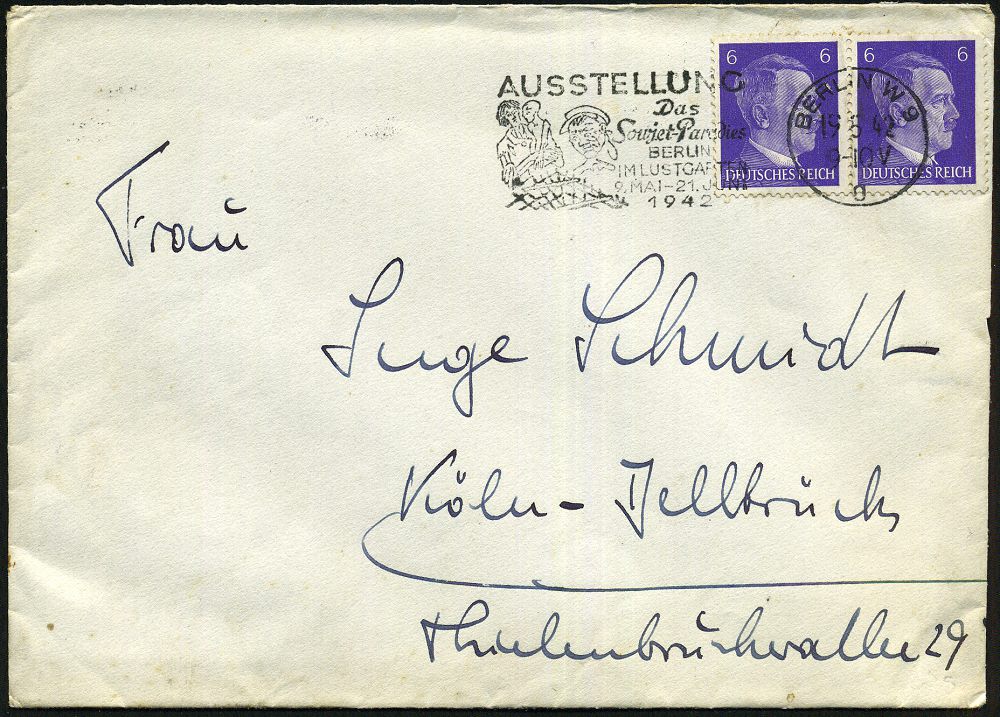 6 6 6 6
AUSSTELLUNG
Das
Sowjet-Paradies
BERLIN
IM LUSTGARTEN
9. MAI-21. JUNI
1942
DEUTSCHES REICH DEUTSCHES REICH
BERLIN W 9
19 5 42
9-10V
Frau
Inge Schmidt
Köln-Dellbrück
Thielenbrucherallee 29